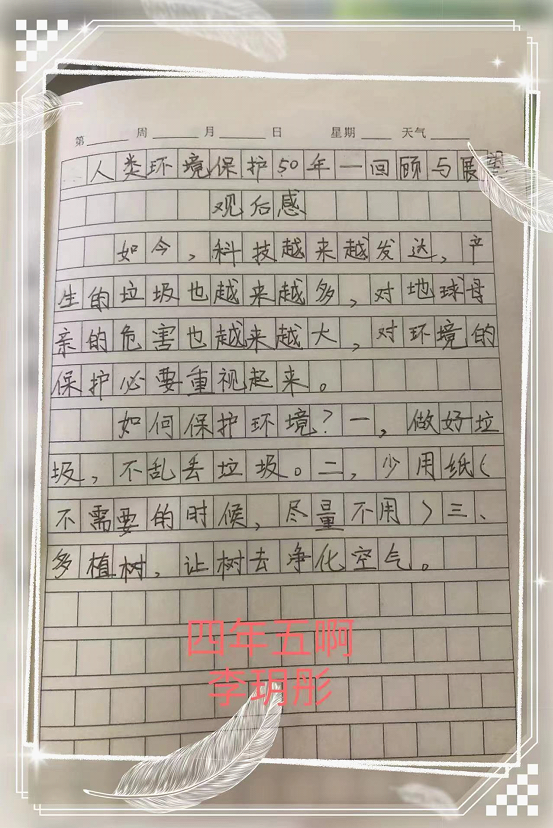 第 周 月 日 星期 天气
人类环境保护50年一回顾与展望
观后感
如今，科技越来越发达，产
生的垃圾也越来越多，对地球母
亲的危害也越来越大，对环境的
保护必要重视起来。
如何保护环境？一，做好垃
圾，不乱丢垃圾。二，少用纸（
不需要的时候，尽量不用）三、
多植树，让树去净化空气。
四年五啊
李玥彤